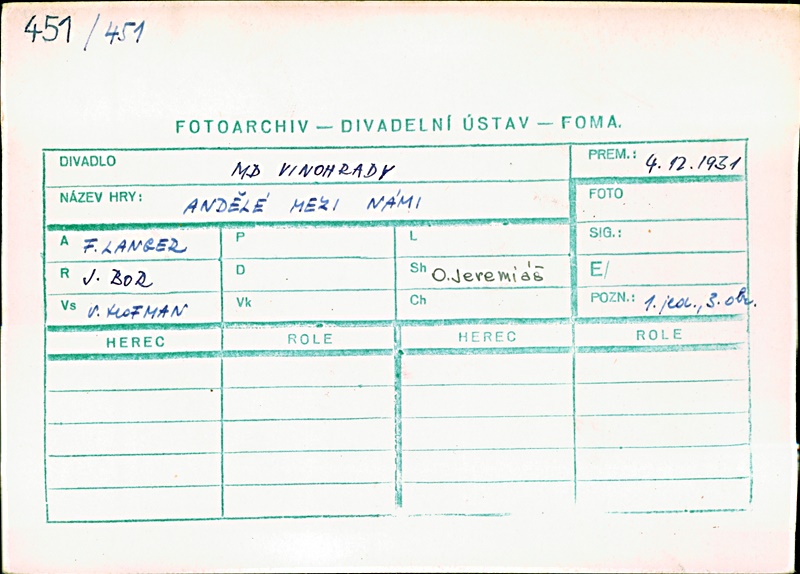 451 / 451
FOTOARCHIV — DIVADELNÍ ÚSTAV — FOMA.
DIVADLO MD VINOHRADY PREM.: 4.12.1931
NÁZEV HRY: ANDĚLÉ MEZI NÁMI FOTO
A F. LANGER P L SIG.:
R J. BOR D Sh O. Jeremiáš E/
Vs V. HOFMAN Vk Ch POZN.: 1. jed., 3. obr.
HEREC ROLE HEREC ROLE